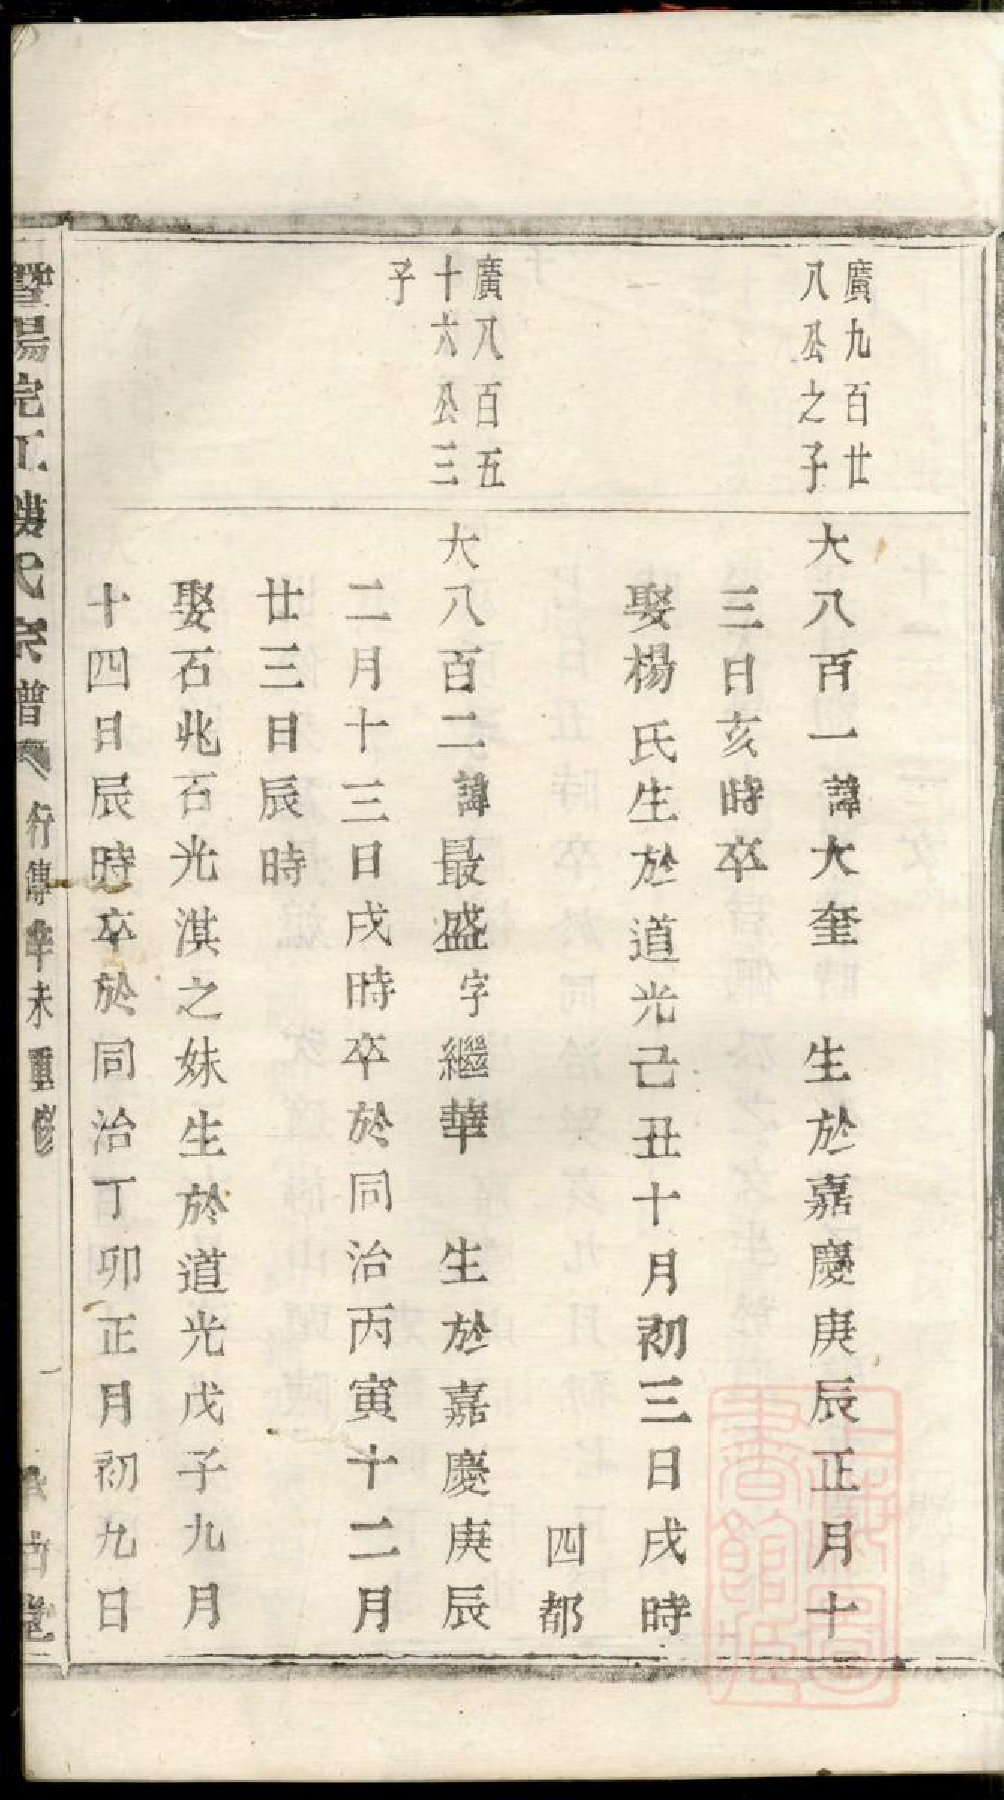 廣九百廿
八公之子
大八百一諱大奎　生於嘉慶庚辰正月十
三日亥時卒
娶楊氏生於道光己丑十月初三日戌時
四都
廣八百五
十六公三
子
大八百二諱最盛字繼華　生於嘉慶庚辰
二月十三日戌時卒於同治丙寅十二月
廿三日辰時
娶石兆石光淇之妹生於道光戊子九月
十四日辰時卒於同治丁卯正月初九日
暨陽浣江樓氏宗譜　行傳辛未重修
上海圖書館藏